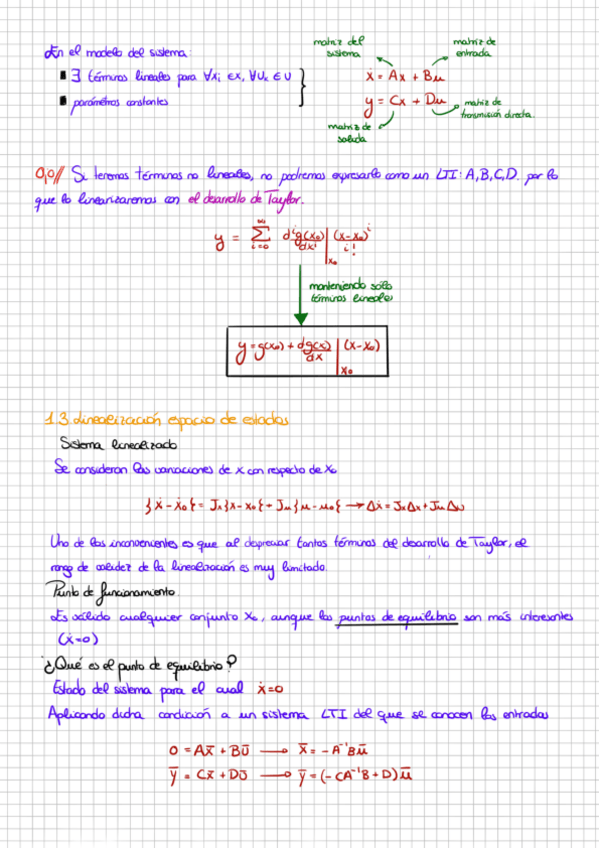 En el modelo del sistema:
▪ ∃ términos lineales para ∀xᵢ ∈x, ∀Uₖ ∈ U
▪ parámetros constantes
matriz del sistema
matriz de entrada
ẋ = Ax + Bu
y = Cx + Du
matriz de salida
matriz de transmisión directa.
Si tenemos términos no lineales, no podremos expresarlo como un LTI: A,B,C,D. por lo
que lo linearizaremos con el desarrollo de Taylor.
y = ∑_{i=0}^{∞} dⁱg(x₀)/dxⁱ |_{x₀} (x-x₀)ⁱ/i!
manteniendo sólo
términos lineales
y = g(x₀) + dg(x)/dx |_{x₀} (x-x₀)
1.3 Linealización espacio de estados
Sistema linealizado
Se consideran las variaciones de x con respecto de x₀
{ẋ - ẋ₀} = Jₓ{x - x₀} + Jᵤ{u - u₀} → Δẋ = JₓΔx + JᵤΔu
Uno de los inconvenientes es que al despreciar tantos términos del desarrollo de Taylor, el
rango de validez de la linealización es muy limitado.
Punto de funcionamiento
Es válido cualquier conjunto x₀, aunque los puntos de equilibrio son más interesantes
(ẋ=0)
¿Qué es el punto de equilibrio?
Estado del sistema para el cual ẋ=0
Aplicando dicha condición a un sistema LTI del que se conocen las entradas
0 = Ax̄ + Bū → x̄ = -A⁻¹Bū
ȳ = Cx̄ + Dū → ȳ = (-CA⁻¹B + D)ū